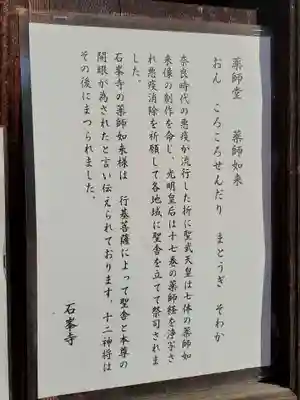 薬師堂　薬師如来
おん　ころころせんだり　まとうぎ　そわか
奈良時代の悪疫が流行した折に聖武天皇は七体の薬師如
来像の制作を命じ、光明皇后は十七巻の薬師経を浄写さ
れ悪疫消除を祈願して各地域に聖舎を立てて祭司されま
した。
石峯寺の薬師如来様は、行基菩薩によって聖舎と本尊の
開眼が為されたと言い伝えられております。十二神将は
その後にまつられました。
石峯寺